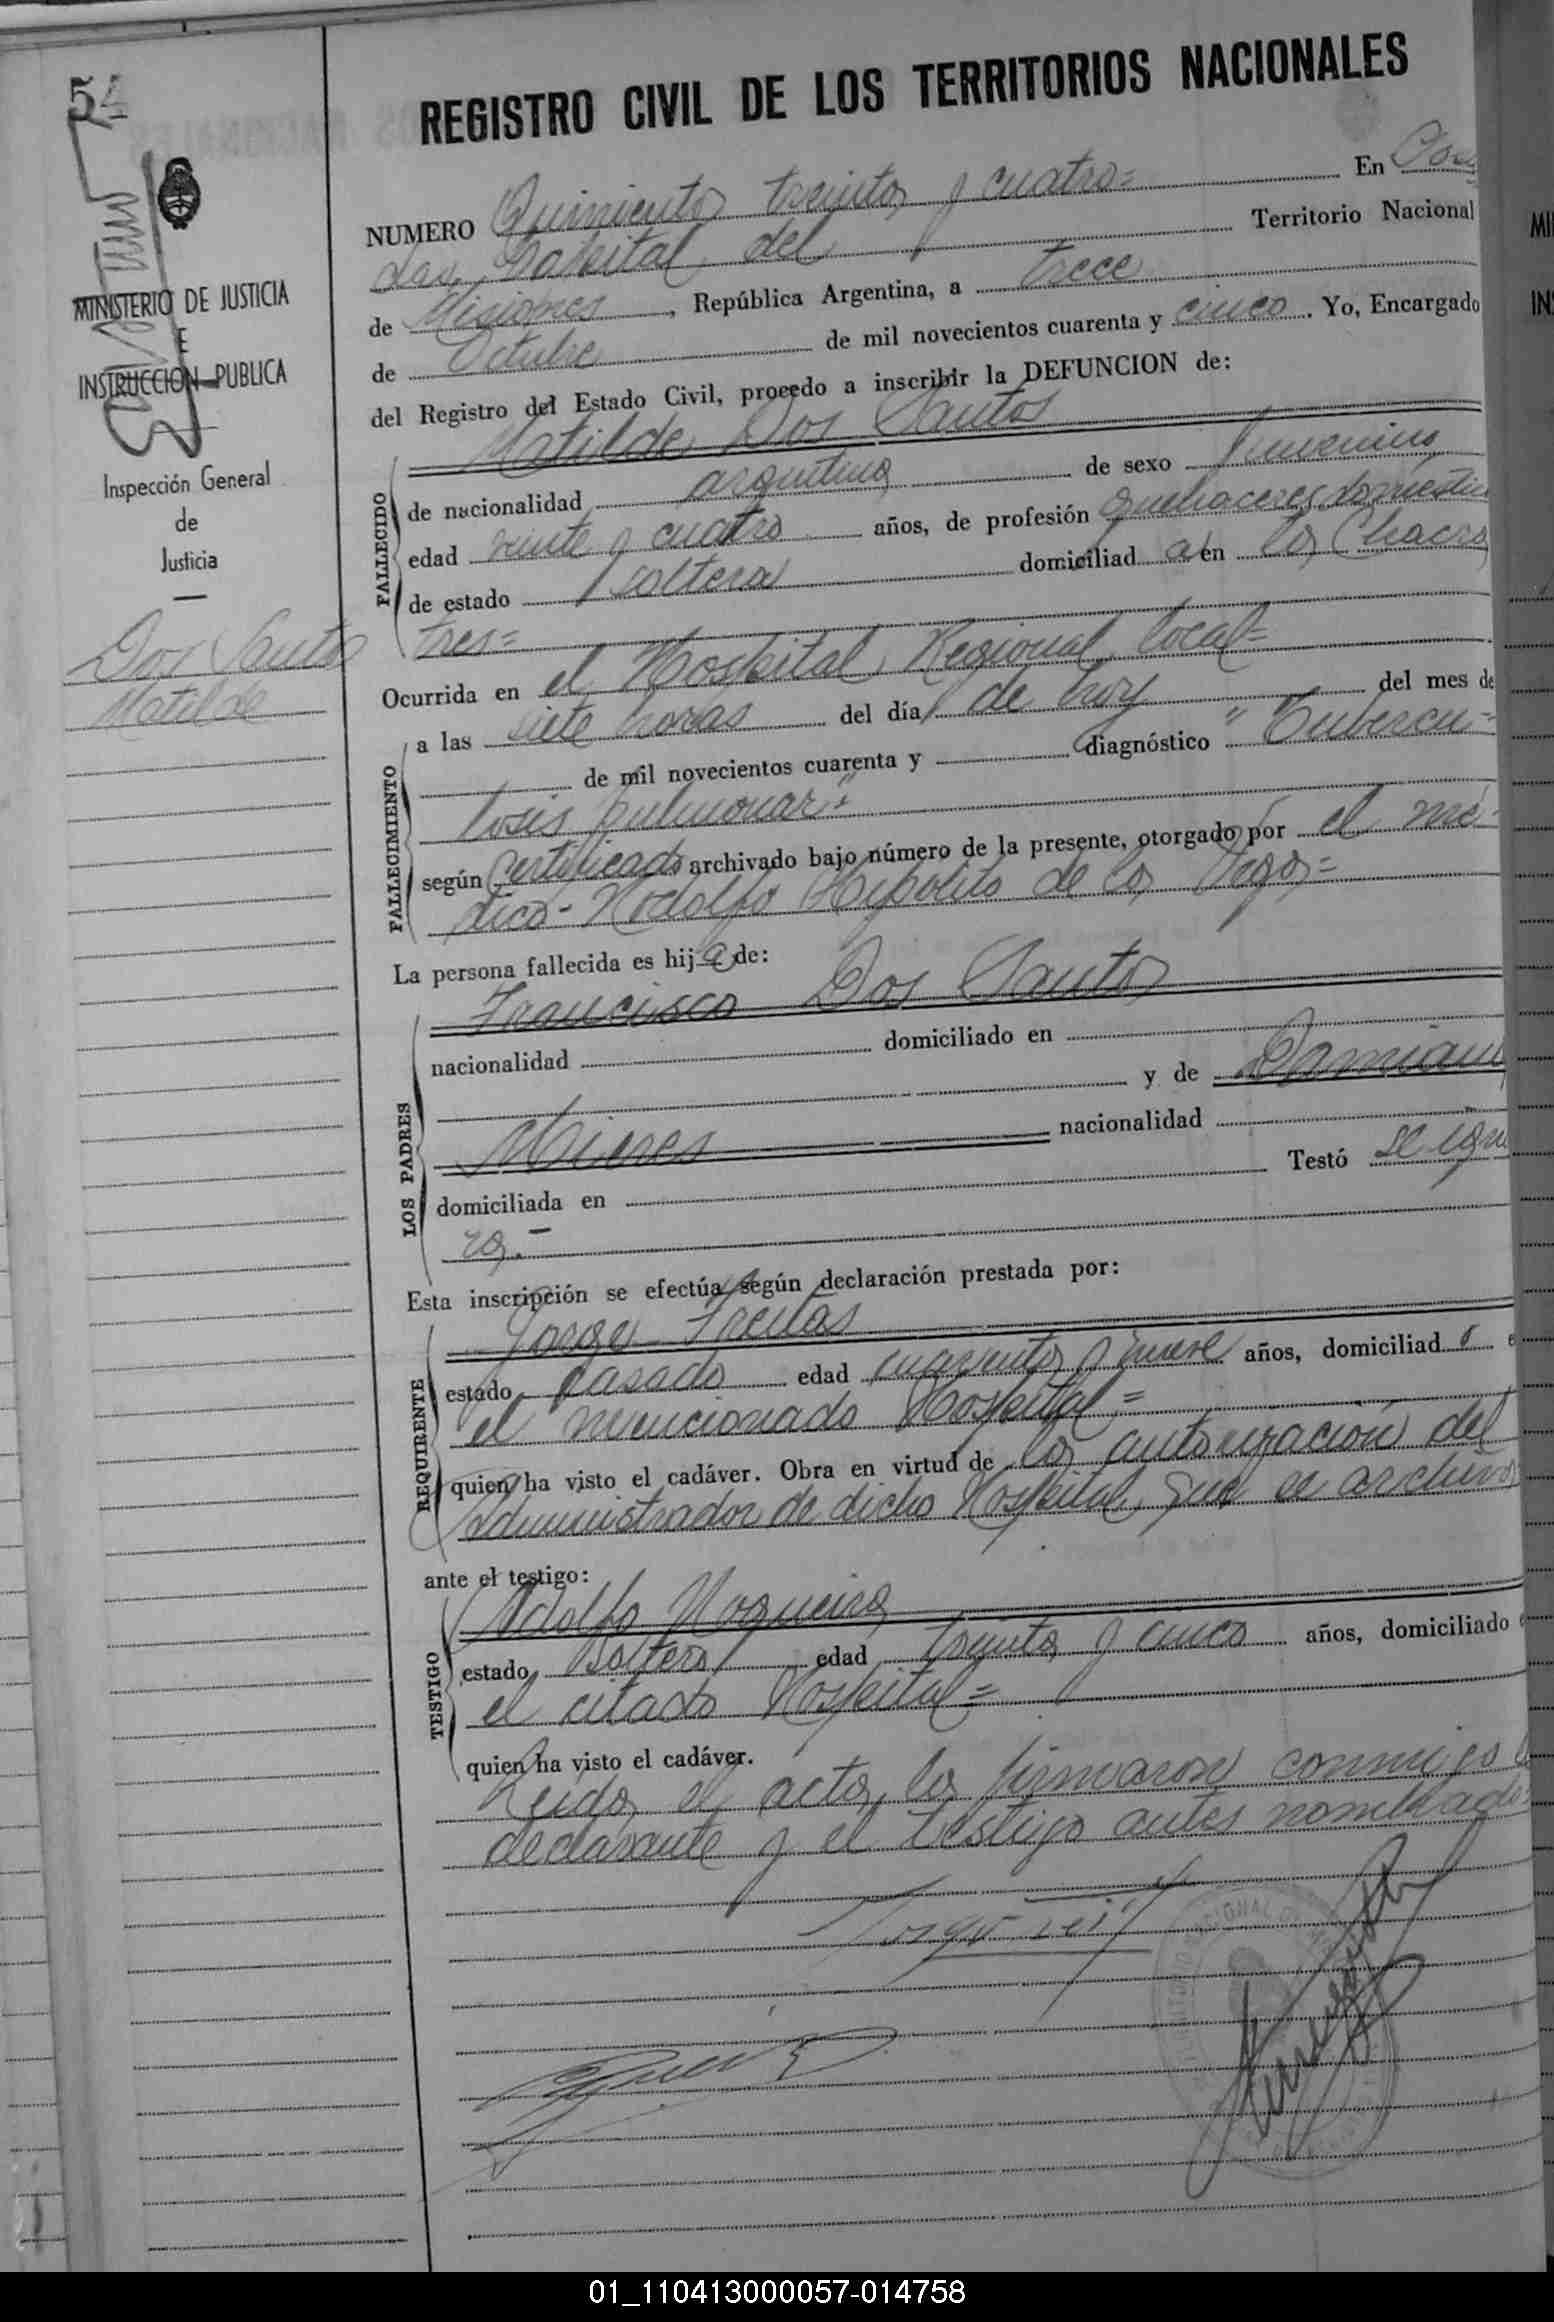 54
REGISTRO CIVIL DE LOS TERRITORIOS NACIONALES
NUMERO Quinientos treinta y cuatro= En Posa
das, Capital del Territorio Nacional
de Misiones, República Argentina, a trece
de Octubre de mil novecientos cuarenta y cinco. Yo, Encargado
del Registro del Estado Civil, procedo a inscribir la DEFUNCION de:
MINISTERIO DE JUSTICIA
E
INSTRUCCION PUBLICA
Inspección General
de
Justicia
Dos Santos
Matilde
FALLECIDO
Matilde Dos Santos
de nacionalidad argentina de sexo femenino
edad veinte y cuatro años, de profesión quehaceres doméstic
de estado soltera domiciliad a en la Chacra
tres=
Ocurrida en el Hospital Regional local=
FALLECIMIENTO
a las siete horas del día de hoy del mes de
de mil novecientos cuarenta y diagnóstico "Tubercu=
losis pulmonar"=
según certificado archivado bajo número de la presente, otorgado por el mé-
dico- Rodolfo Hipólito de la Vega=
La persona fallecida es hij a de:
LOS PADRES
Francisco Dos Santos
nacionalidad domiciliado en
y de Damiana
Mieres nacionalidad
domiciliada en Testó se igno
ra.-
Esta inscripción se efectúa según declaración prestada por:
REQUIRENTE
Jorge Freitas
estado casado edad cuarenta y nueve años, domiciliad o e
el mencionado Hospital=
quien ha visto el cadáver. Obra en virtud de la autorización del
Administrador de dicho Hospital, que se archiva
ante el testigo:
TESTIGO
Adolfo Nogueira
estado Soltero edad treinta y cinco años, domiciliado e
el citado Hospital=
quien ha visto el cadáver.
Leída el acta, la firmaron conmigo
declarante y el testigo antes nombrado
01_110413000057-014758